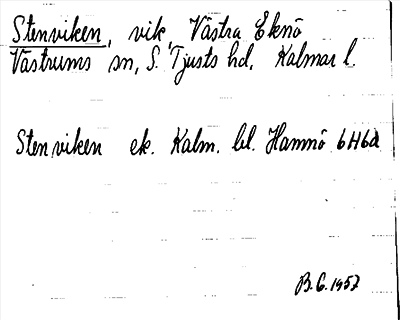 Stenviken, vik, Västra Eknö
Västrums sn, S. Tjusts hd, Kalmar l.
Stenviken ek. Kalm. bl. Hamnö 6H6d
B.G. 1957